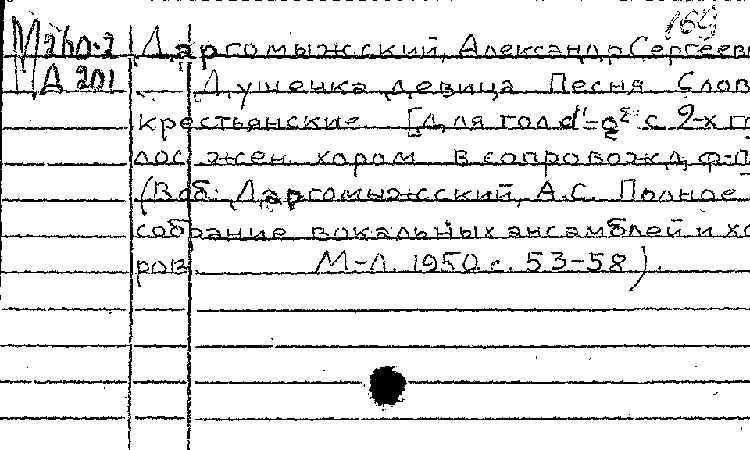 169
М260-2 Даргомыжский, Александр Сергееви
Д 201 Душечка девица Песня Слов
крестьянские [Для гол d¹-g² с 2-х го
лос жен. хором в сопровожд. ф-п
(В сб: Даргомыжский, А.С. Полное
собрание вокальных ансамблей и хо
ров. М-Л. 1950 с. 53-58).